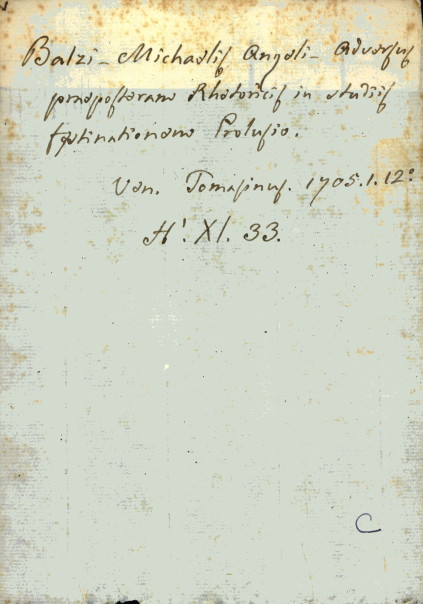 Balzi - Michaelis Angeli - Adversus
præposteram Rhetoricis in studiis
festinationem Prolusio.
Ven. Tomasinus. 1705. 1. 12°.
H'. XI. 33.
C